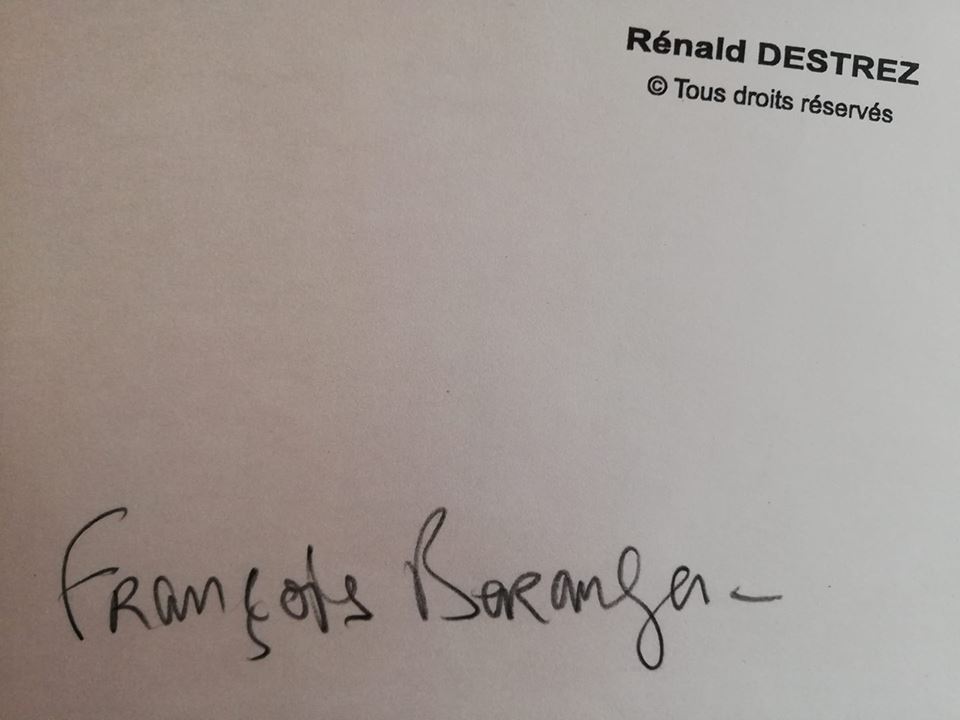 Rénald DESTREZ
© Tous droits réservés
François Beranger